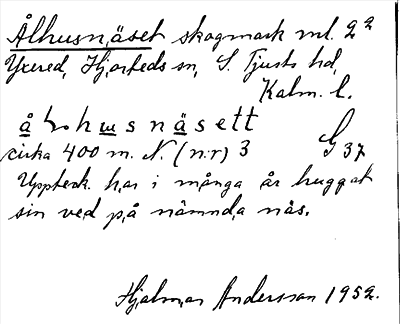 Ålhusnäset skogmark ml. 2²
Yxered, Hjorteds sn, S. Tjusts hd,
Kalm. l.
åhusnäsett
cirka 400 m. N. (nr) 3 G 37
Uppteck. har i många år huggat
sin ved på nämnda näs.
Hjalmar Andersson 1952.